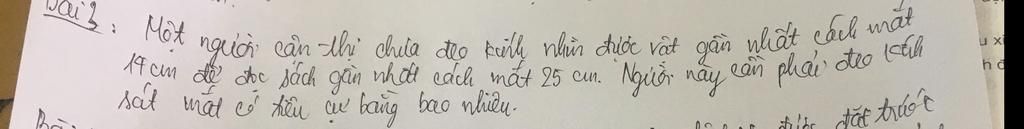 Bài 3: Một người cận thị chưa đeo kính nhìn được vật gần nhất cách mắt
14cm để đọc sách gần nhất cách mắt 25 cm. Người này cần phải đeo kính
sát mắt có tiêu cự bằng bao nhiêu.
được đặt trước